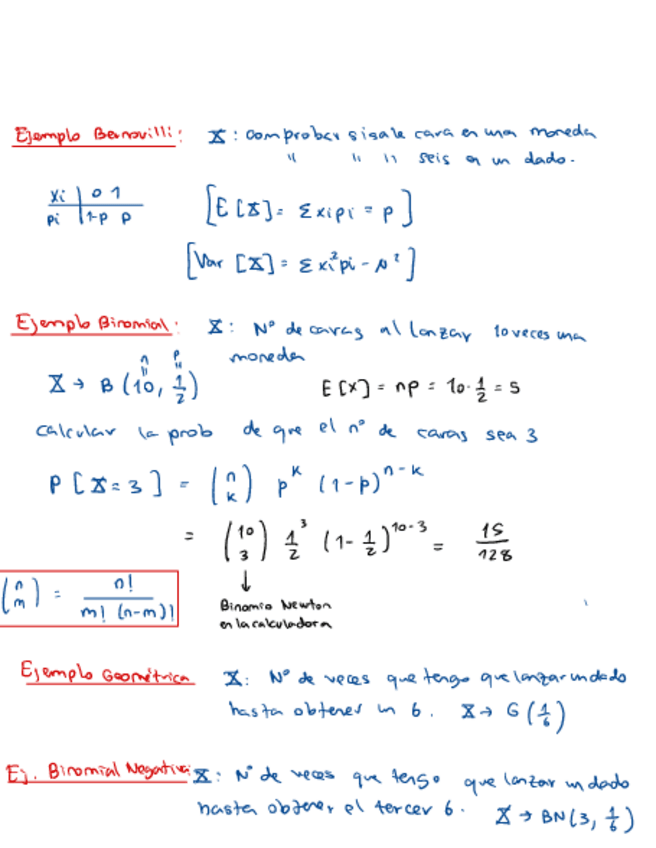 Ejemplo Bernouilli: X: comprobar si sale cara en una moneda
" " " seis en un dado.
xi | 0 1
pi | 1-p p
[E[X] = Σ xi pi = p]
[Var [X] = Σ xi² pi - μ²]
Ejemplo Binomial: X: Nº de caras al lanzar 10 veces una
moneda
n p
" "
X → B (10, 1/2) E[X] = np = 10·1/2 = 5
calcular la prob de que el nº de caras sea 3
P [X = 3] = (n k) p^k (1-p)^n-k
= (10 3) 1/2^3 (1 - 1/2)^10-3 = 15/128
↓
(n m) = n! / m! (n-m)!
Binomio Newton
en la calculadora
Ejemplo Geométrica X: Nº de veces que tengo que lanzar un dado
hasta obtener un 6. X → G (1/6)
Ej. Binomial Negativa: X: Nº de veces que tengo que lanzar un dado
hasta obtener el tercer 6. X → BN (3, 1/6)